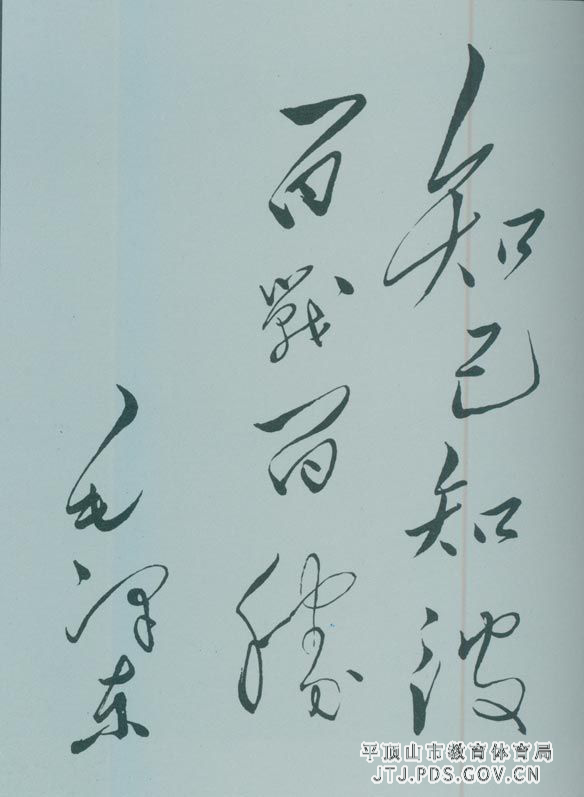 知己知彼
百戰百勝
毛泽东
平顶山市教育体育局
JTJ.PDS.GOV.CN